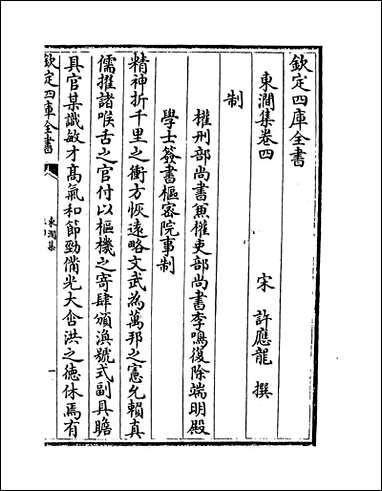 欽定四庫全書
東澗集卷四
宋 許應龍 撰
制
權刑部尚書兼權吏部尚書李鳴復除端明殿
學士簽書樞密院事制
精神折千里之衝方恢遠略文武為萬邦之憲允賴真
儒擢諸喉舌之官付以樞機之寄肆頒渙號式副具瞻
具官某識敏才髙氣和節勁備光大含洪之徳休焉有
欽定四庫全書
東澗集
一